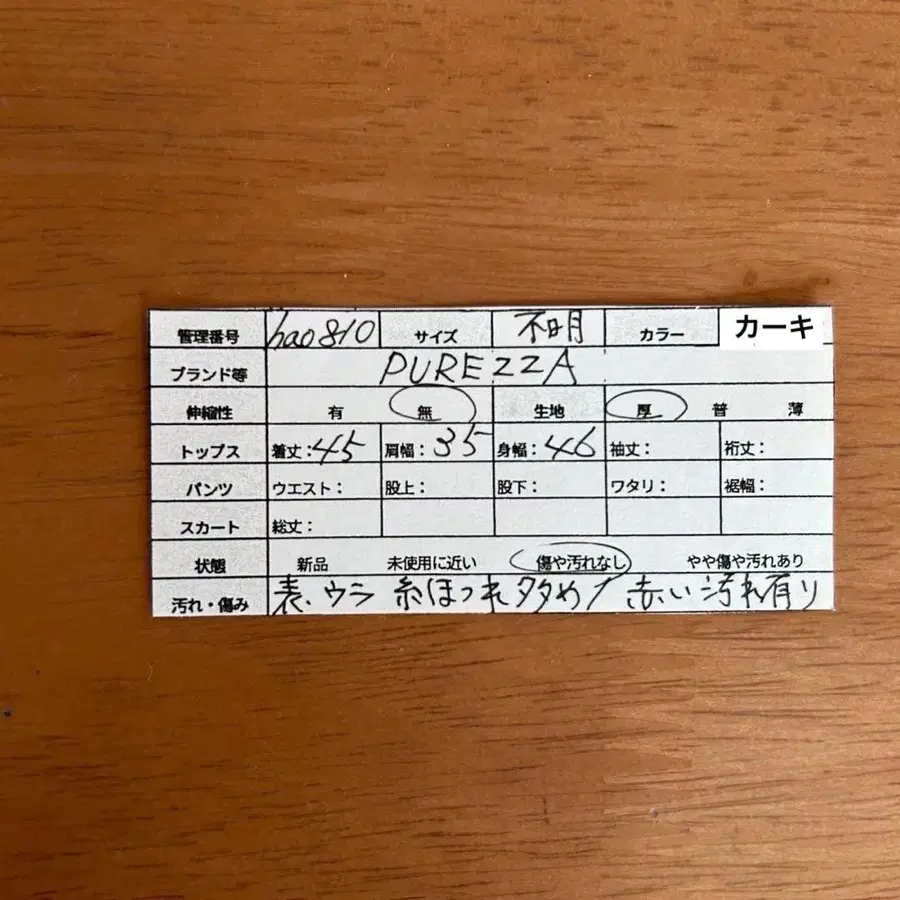 管理番号 hao810 サイズ 不明 カラー カーキ
ブランド等 PUREZZA
伸縮性 有 無 生地 厚 普 薄
トップス 着丈:45 肩幅:35 身幅:46 袖丈: 裄丈:
パンツ ウエスト: 股上: 股下: ワタリ: 裾幅:
スカート 総丈:
状態 新品 未使用に近い 傷や汚れなし やや傷や汚れあり
汚れ・傷み 表、ウラ 糸ほつれ多め / 赤い汚れ有り